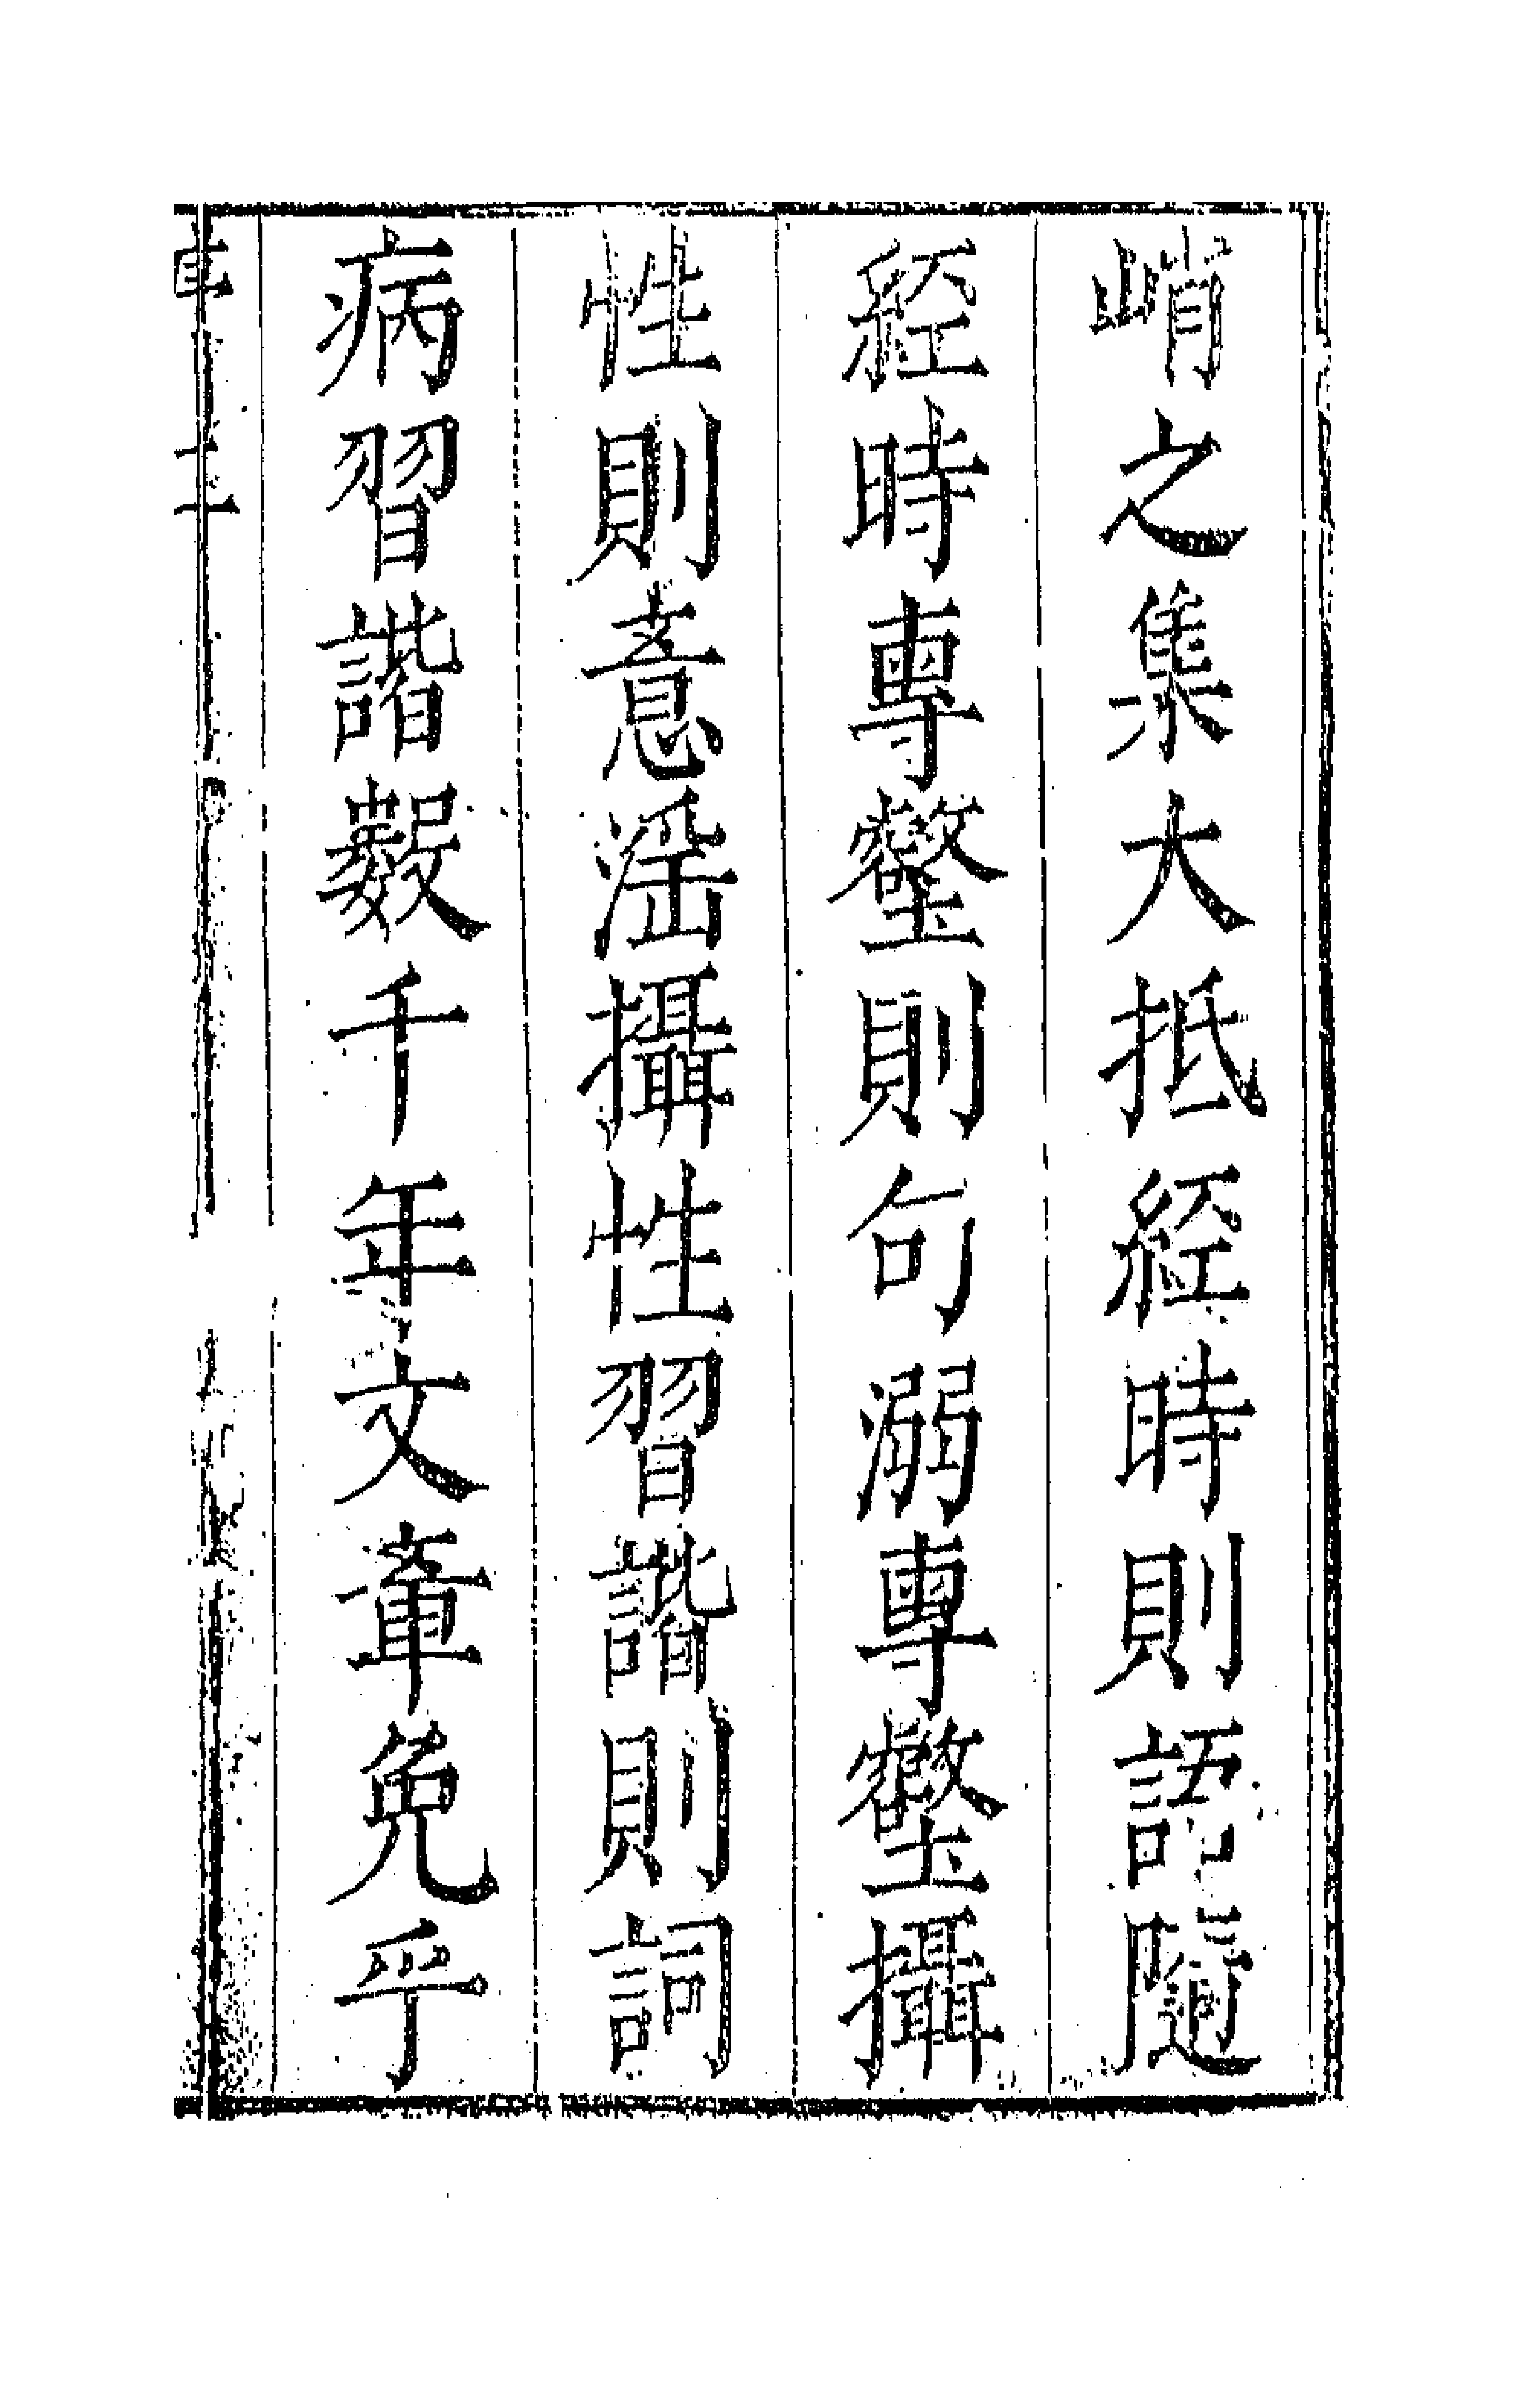 峭之集大抵經時則語隨
經時專鑿則句溺專鑿攝
性則意淫攝性習諧則詞
病習諧數千年文章免乎